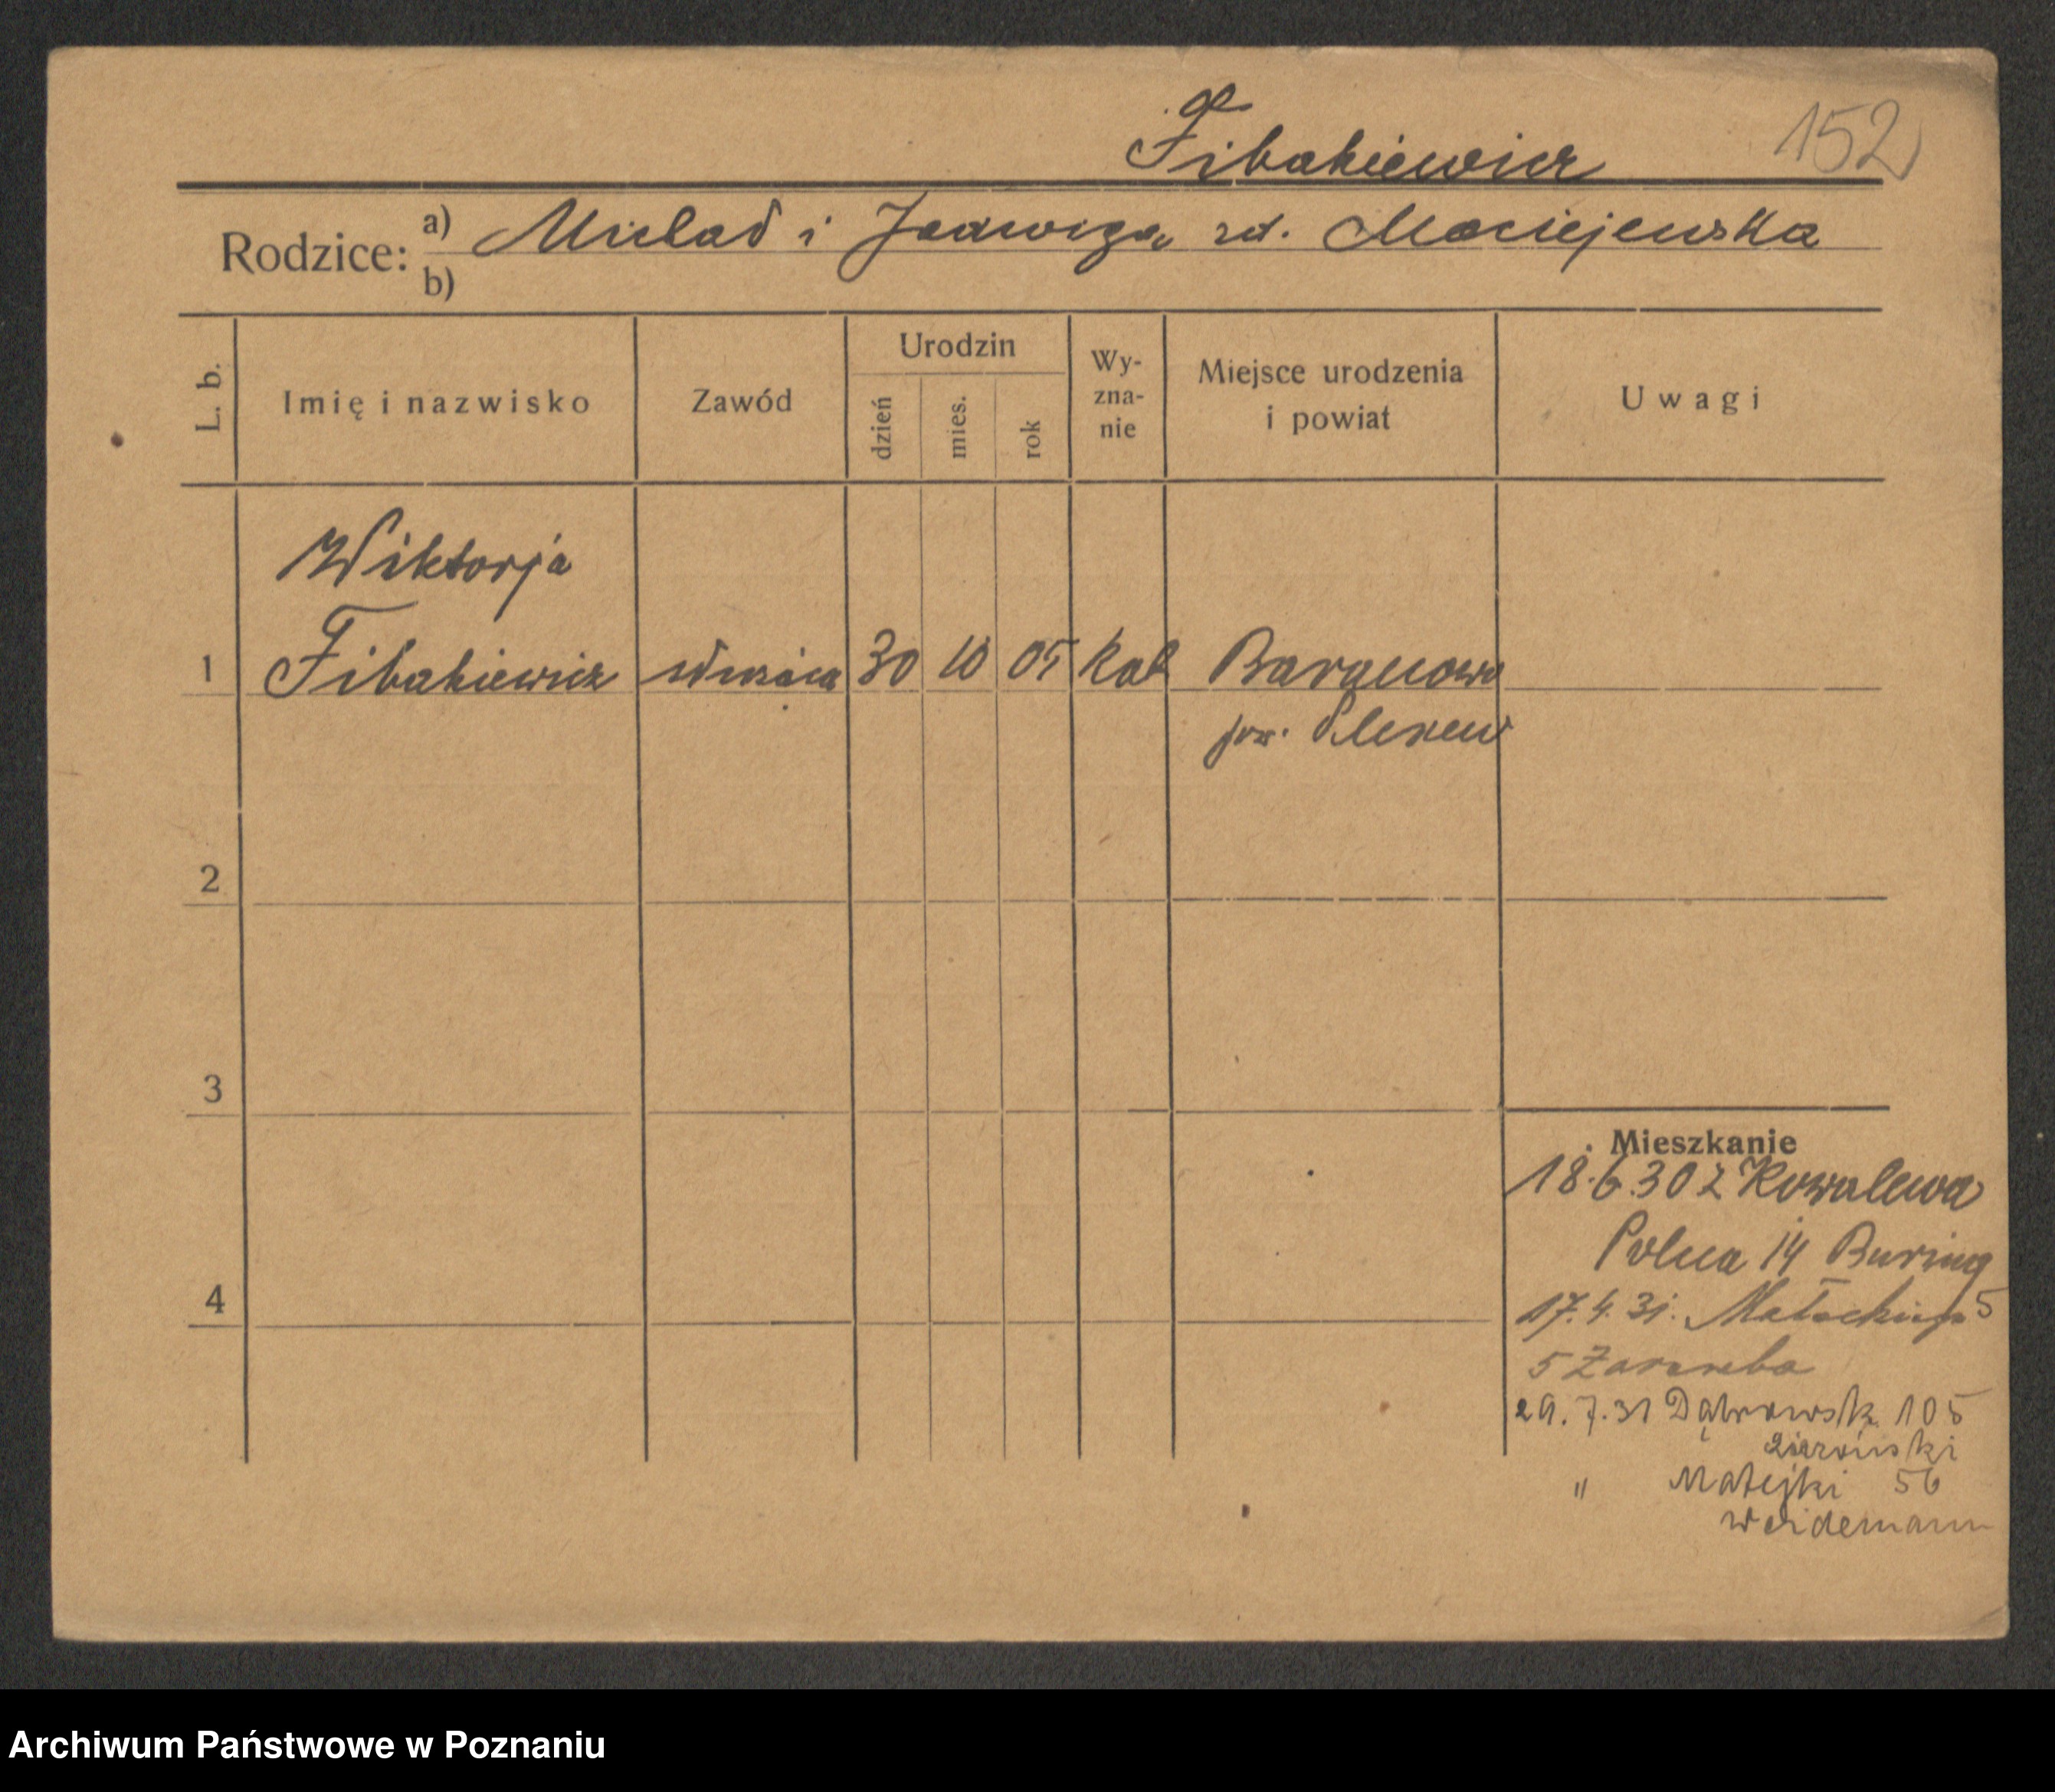 Fibakiewicz
152
Rodzice: a) Michał i Jadwiga zd. Maciejewska
b)
L. b.
Imię i nazwisko
Zawód
Urodzin
dzień
mies.
rok
Wy-
zna-
nie
Miejsce urodzenia
i powiat
Uwagi
Wiktorja
1 Fibakiewicz służąca 30 10 05 kat Baranowo
pow. Pleszew
2
3
4
Mieszkanie
18.6.30 z Kowalewa
Polna 14 Buring
17.4.31. Małeckiego 5
5 Zaremba
29.7.31 Dąbrowsk. 105
" Matejki 56
Weidemann
Archiwum Państwowe w Poznaniu